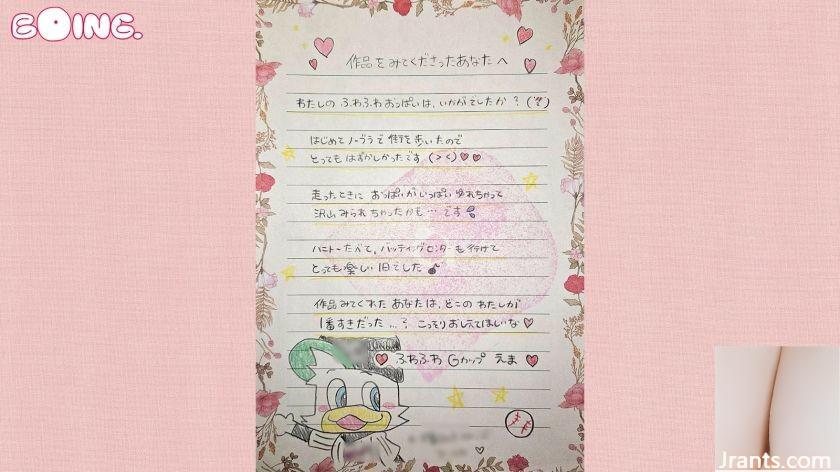 BOING.
作品をみてくださったあなたへ
わたしの ふわふわおっぱいは、いかがでしたか？
はじめて ノーブラで 街を歩いたので
とっても はずかしかったです (＞＜)♥♥
走ったときに おっぱいが いっぱい ゆれちゃって
沢山 みられちゃったかも…です
ハニトーたべて、バッティングセンターも 行けて
とっても 楽しい 1日でした♪
作品みてくれた あなたは、どこの わたしが
1番すきだった…？ こっそり おしえてほしいな♥
♥ ふわふわ Gカップ えま ♥
Jrants.com